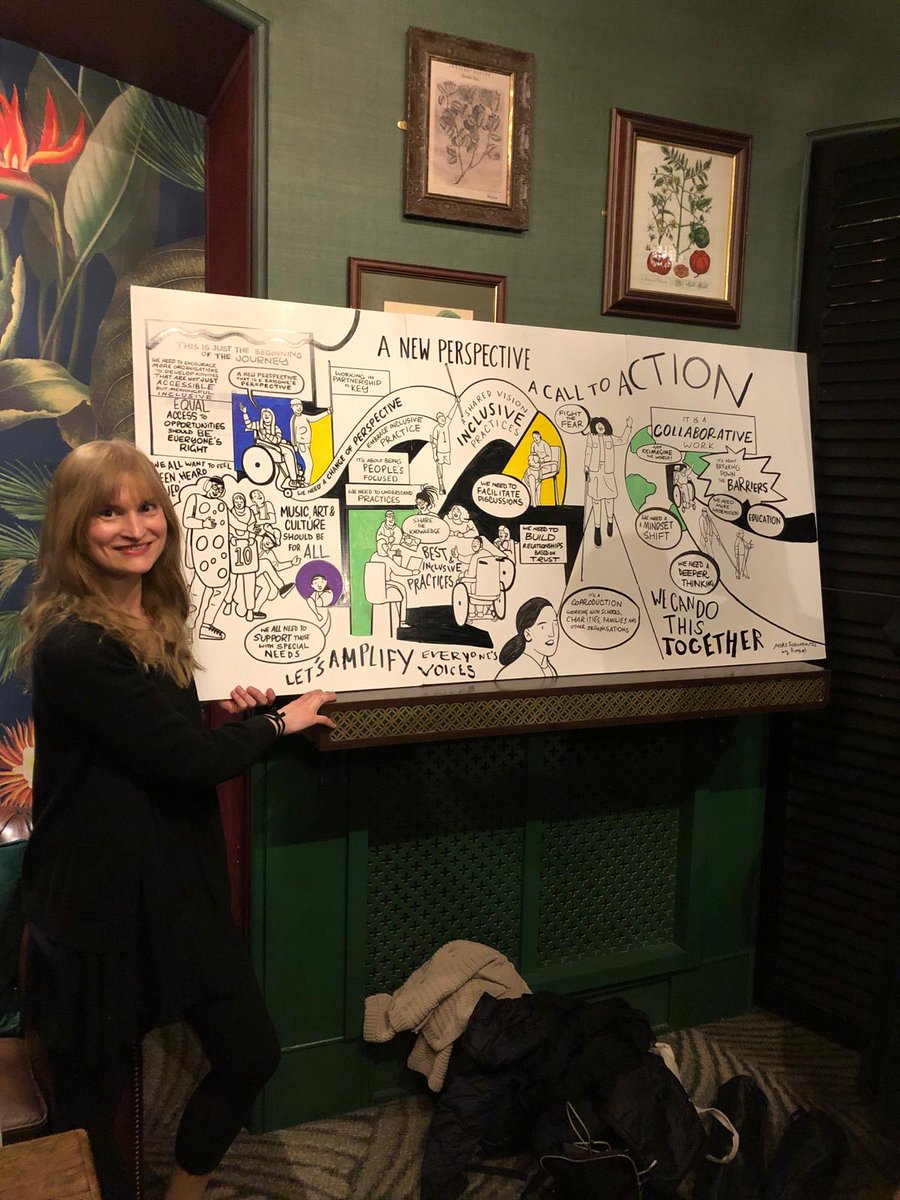 A NEW PERSPECTIVE
A CALL TO ACTION
THIS IS JUST THE BEGINNING
OF THE JOURNEY
WE NEED TO ENCOURAGE
MORE ORGANISATIONS
TO DEVELOP ACTIVITIES
THAT ARE NOT JUST
ACCESSIBLE
BUT MEANINGFUL
INCLUSIVE
EQUAL
ACCESS TO
OPPORTUNITIES
SHOULD BE
EVERYONE'S
RIGHT
A NEW PERSPECTIVE
THAT IS
PERSPECTIVE
WORKING IN
PARTNERSHIP
IS KEY
WE NEED A CHANGE OF PERSPECTIVE
EMBRACE INCLUSIVE
PRACTICE
IT'S ABOUT BEING
PEOPLE'S
FOCUSED
WE NEED TO UNDERSTAND
PRACTICES
SHARED VISION
INCLUSIVE
PRACTICES
FIGHT THE
FEAR
IT IS A
COLLABORATIVE
WORK
REIMAGINE
THE WORLD!
IT'S ABOUT
BREAKING
DOWN THE
BARRIERS
WE NEED
MORE
EDUCATION
WE ALL WANT TO FEEL
SEEN, HEARD
10
MUSIC ART &
CULTURE
SHOULD BE
FOR ALL
SHARE THE
KNOWLEDGE
BEST
INCLUSIVE
PRACTICES
WE NEED TO
FACILITATE
DISCUSSIONS
WE NEED TO
BUILD
RELATIONSHIPS
BASED ON
TRUST
WE NEED A
MINDSET
SHIFT
WE NEED A
DEEPER
THINKING
WE ALL NEED TO
SUPPORT THOSE
WITH SPECIAL
NEEDS
IT'S A
COPRODUCTION
WORKING WITH SCHOOLS,
CHARITIES, FAMILIES AND
OTHER ORGANISATIONS
WE CAN DO
THIS
TOGETHER
LET'S AMPLIFY EVERYONE'S
VOICES